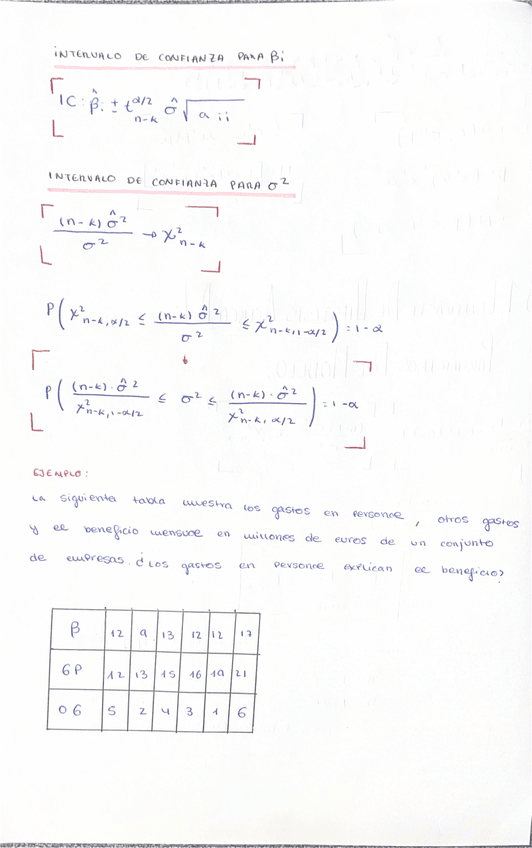 INTERVALO DE CONFIANZA PARA βi
IC: β̂i ± t^α/2_n-k σ̂ √aii
INTERVALO DE CONFIANZA PARA σ²
(n-k) σ̂² / σ² → χ²_n-k
P( χ²_n-k,α/2 ≤ (n-k) σ̂² / σ² ≤ χ²_n-k,1-α/2 ) = 1-α
P( (n-k)·σ̂² / χ²_n-k,1-α/2 ≤ σ² ≤ (n-k)·σ̂² / χ²_n-k,α/2 ) = 1-α
EJEMPLO:
La siguiente tabla muestra los gastos en personal, otros gastos
y el beneficio mensual en millones de euros de un conjunto
de empresas. ¿Los gastos en personal explican el beneficio?
B 12 9 13 12 12 17
GP 12 13 15 16 19 21
OG 5 2 4 3 1 6